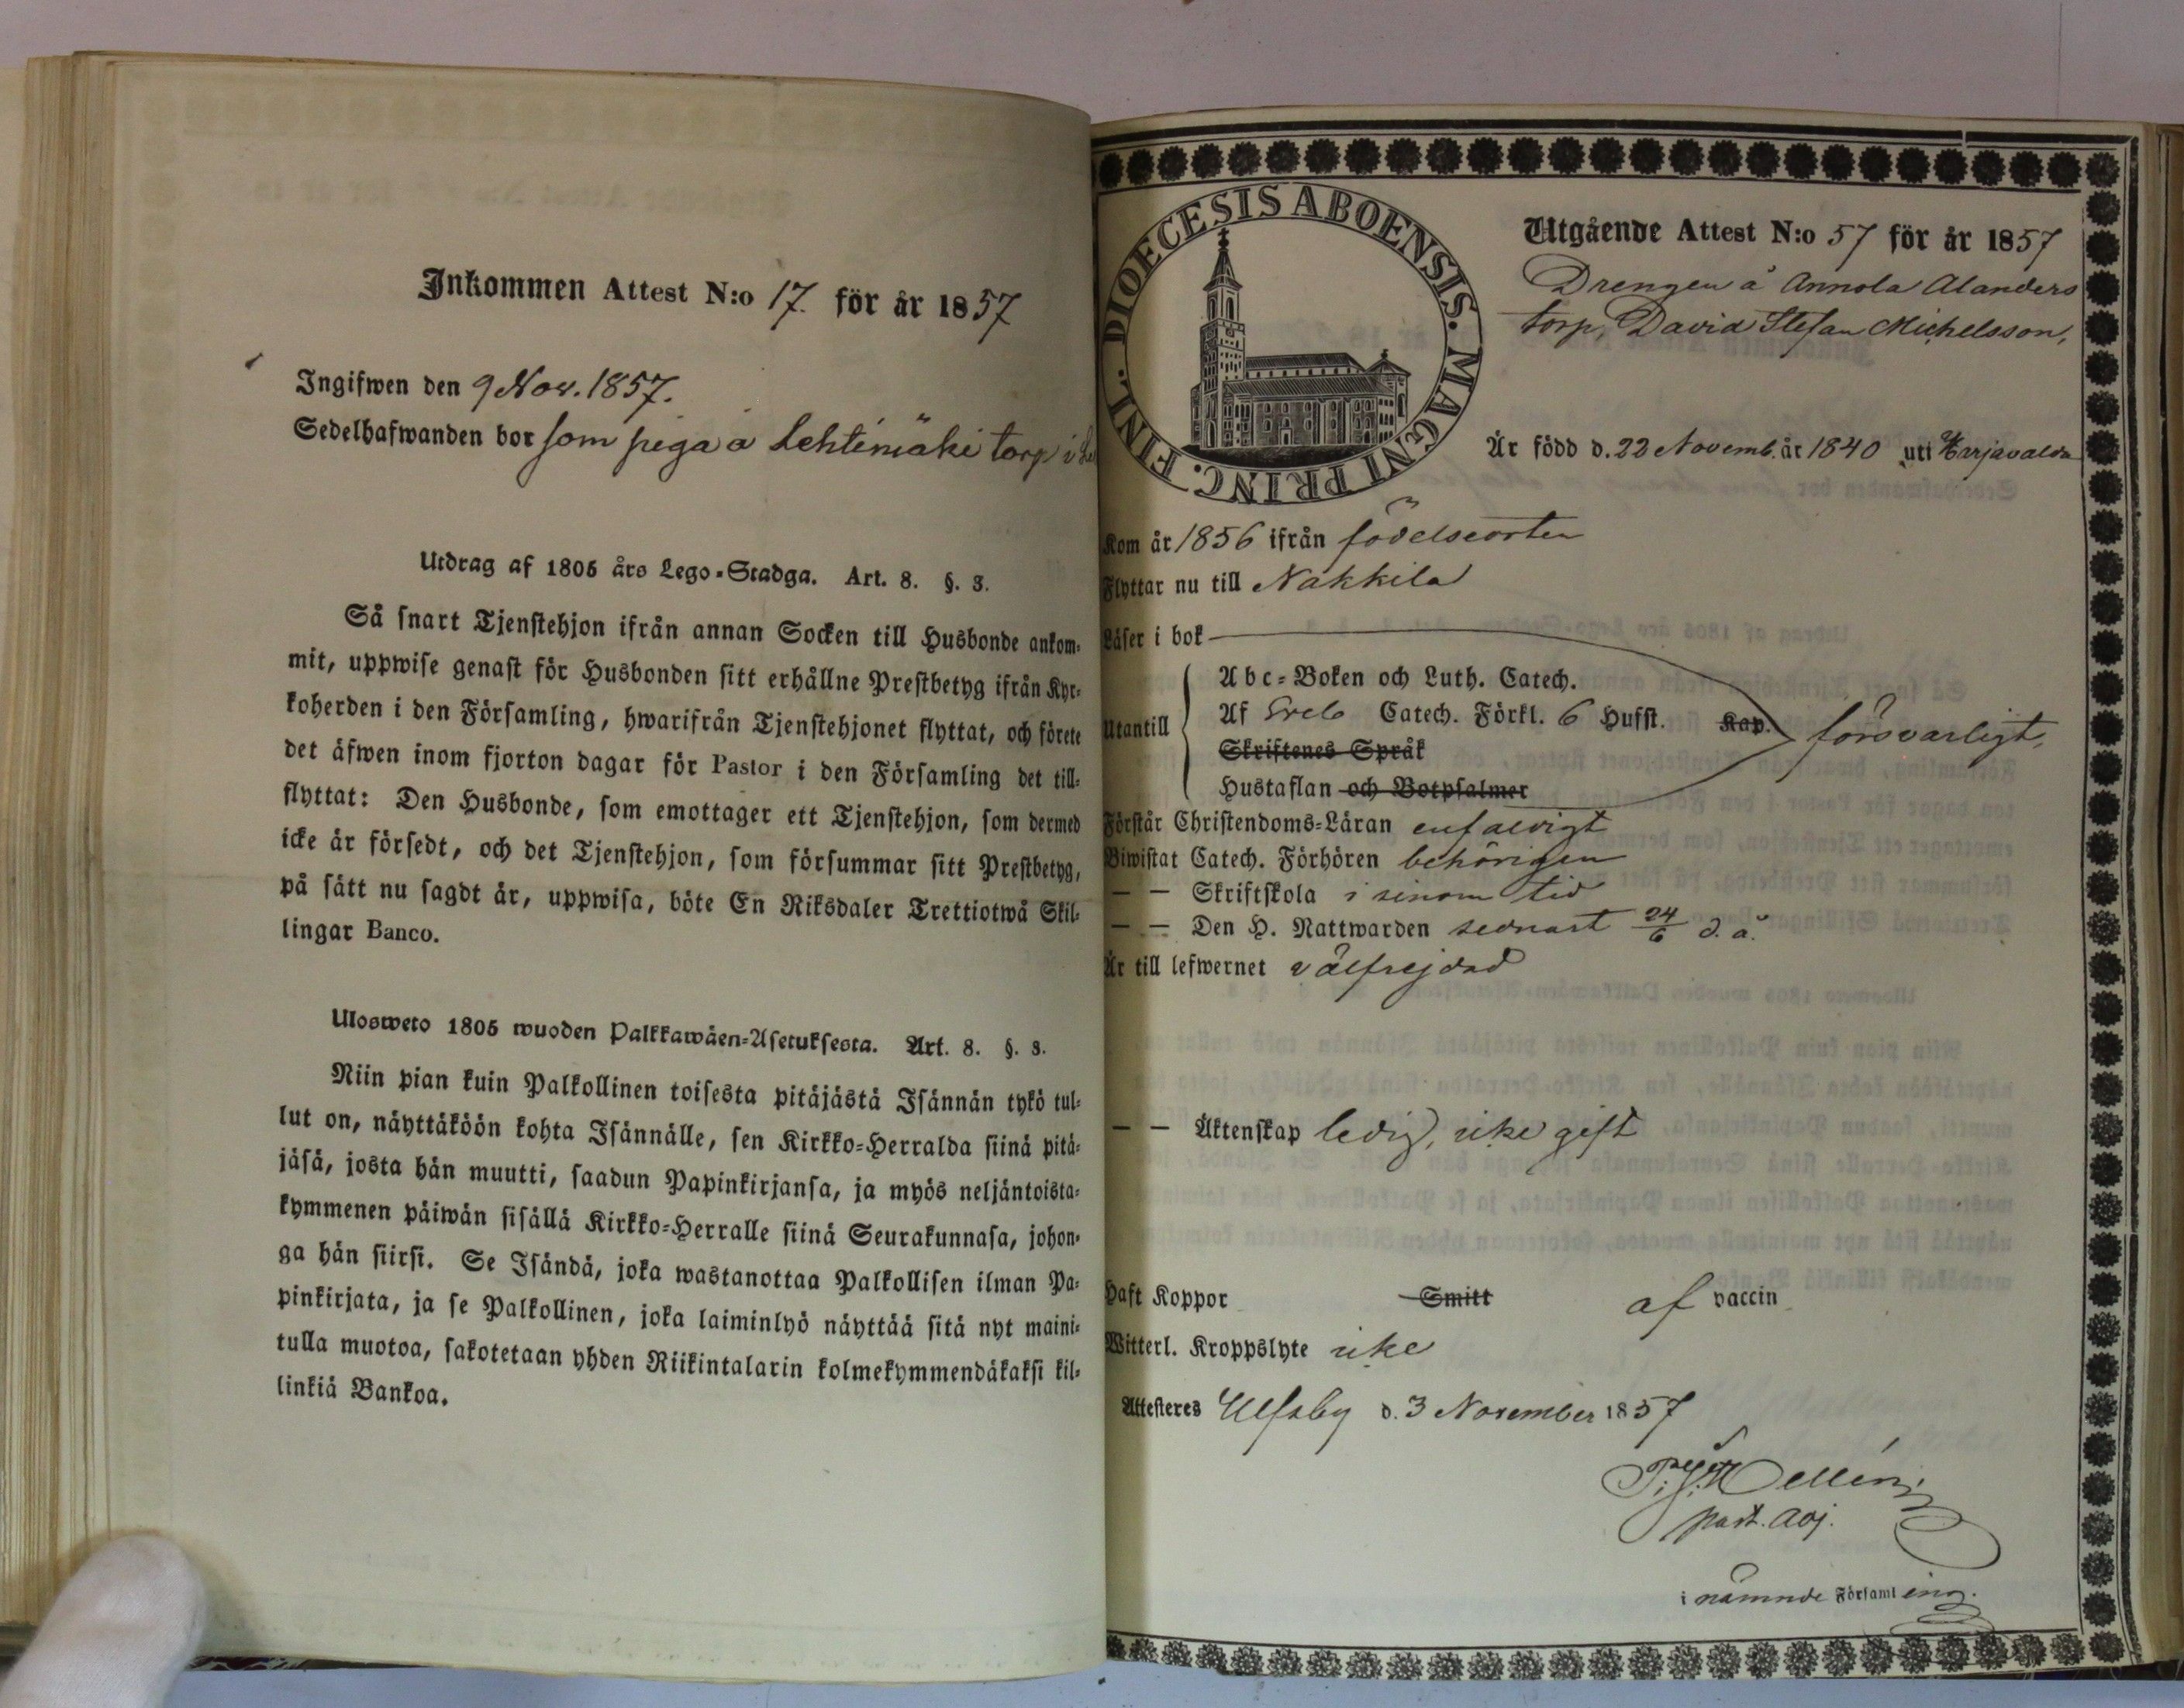 Inkommen Attest N:o 17. för år 1857
Ingifwen den 9 Nov. 1857.
Sedelhafwanden bor som piga å Lehtimäki torp i
Utdrag af 1805 års Lego-Stadga. Art. 8. §. 3.
Så snart Tjenstehjon ifrån annan Socken till Husbonde ankom-
mit, uppwise genast för Husbonden sitt erhållne Prestbetyg ifrån Kyr-
koherden i den Församling, hwarifrån Tjenstehjonet flyttat, och förete
det äfwen inom fjorton dagar för Pastor i den Församling det till-
flyttat: Den Husbonde, som emottager ett Tjenstehjon, som dermed
icke är försedt, och det Tjenstehjon, som försummar sitt Prestbetyg,
på sätt nu sagdt är, uppwisa, böte En Riksdaler Trettiotwå Skil-
lingar Banco.
Ulosweto 1805 wuoden Palkkawäen-Asetuksesta. Art. 8. §. 3.
Niin pian kuin Palkollinen toisesta pitäjästä Isännän tykö tul-
lut on, näyttäköön kohta Isännälle, sen Kirkko-Herralda siinä pitä-
jäsä, josta hän muutti, saadun Papinkirjansa, ja myös neljäntoista-
kymmenen päiwän sisällä Kirkko-Herralle siinä Seurakunnasa, johon-
ga hän siirsi. Se Isändä, joka wastanottaa Palkollisen ilman Pa-
pinkirjata, ja se Palkollinen, joka laiminlyö näyttää sitä nyt maini-
tulla muotoa, sakotetaan yhden Riikintalarin kolmekymmendäkaksi kil-
linkiä Bankoa.
DIOECESIS ABOENSIS. MAGNI PRINC. FINL.
Utgående Attest N:o 57 för år 1857
Drengen å Annola Alanders
torp, David Stefan Michelsson,
Är född d. 22 Novemb. år 1840 uti Harjavalda
Kom år 1856 ifrån födelseorten
Flyttar nu till Nakkila
Läser i bok
Abc-Boken och Luth. Catech.
Utantill Af Sveb Catech. Förkl. 6 Hufst. Kap. försvarligt,
Skriftenes Språk
Hustaflan och Botpsalmer
Förstår Christendoms-Läran enfaldigt
Biwistat Catech. Förhören behörigen
— — Skriftskola i sinom tid
— — Den H. Nattwarden sednast 24/6 d. å.
Är till lefwernet välfrejdad
— — Äktenskap ledig, icke gift
Haft Koppor Smitt af vaccin
Witterl. Kroppslyte icke
Attesteres Ulfsby d. 3 November 1857
past. adj.
i nämnde Församling.